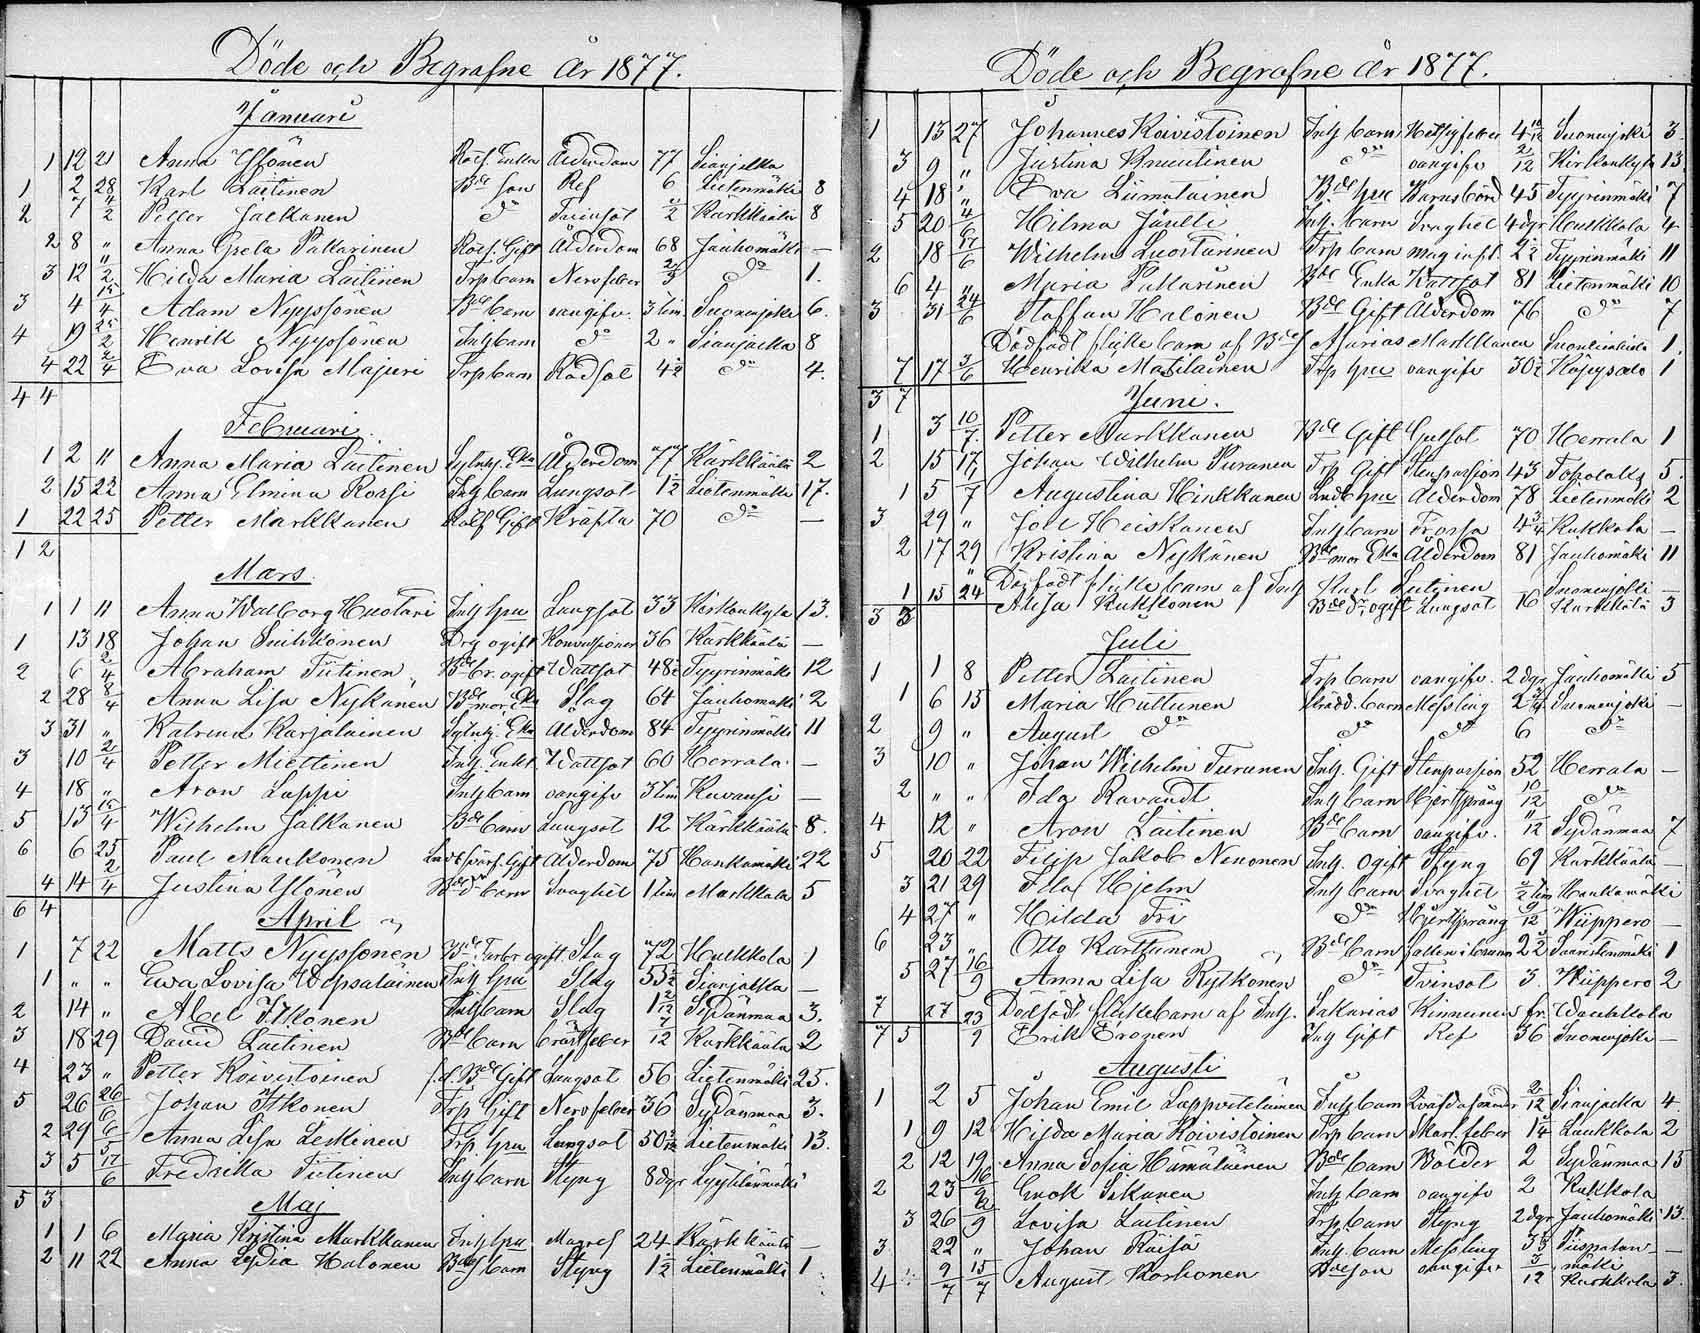 Döde och Begrafne år 1877.
Januari
1 12 21 Anna Ylönen Rotf. Enka Ålderdom 77 Sianjalka
1 2 28 Karl Laitinen Bde son Ref 6 Lietenmäki 8
2 7 4/2 Petter Jalkanen do 1/2 Kärkkäälä 8
2 8 " Anna Greta Pakarinen Rotf. Gift Ålderdom 68 Jauhomäki —
3 12 11/2 Hilda Maria Laitinen Trp barn Nervfeber 2/3 do 1.
3 4 15/4 Adam Nyyssönen Bde barn oangifv. 3 tim. Suonenjoki 6.
4 19 25/2 Henrik Nyyssönen Inh barn do 2 " Sianjalka 8
4 22 2/4 Eva Lovisa Majuri Trp barn Rödsot 4 1/2 do 4.
4 4
Februari
1 2 11 Anna Maria Laitinen Sytnhj. Eka Ålderdom 77 Kärkkäälä 2
2 15 22 Anna Elmina Rossi Inh barn Lungsot 1 1/2 Lietenmäki 17.
1 22 25 Petter Markkanen Rotf Gift Kräfta 70 do —
1 2
Mars
1 1 11 Anna Walborg Huotari Inh hru Lungsot 33 Kirkonkylä 13.
1 13 18 Johan Suihkonen Drg ogift Konvulsioner 36 Kärkkäälä —
2 6 2/4 Abraham Tiitinen Bde br. ogift Wattsot 48 1/2 Tyyrinmäki 12
2 28 8/4 Anna Lisa Nykänen Bde mor Eka Slag 64 Jauhomäki 2
3 31 " Katrina Karjalainen Sytnhj. Eka Ålderdom 84 Tyyrinmäki 11
3 10 2/4 Petter Miettinen Inh. Enkl. Wattsot 60 Herrala —
4 18 " Aron Lappi Inh barn oangifv 3 tim Kuvansi —
5 13 15/4 Wilhelm Jalkanen Bde barn Lungsot 12 Kärkkäälä 8.
6 6 25 Paul Maukonen Gift Ålderdom 75 Hankamäki 22
4 14 2/4 Justina Ylönen Bde barn Svaghet 1 tim Markkala 5
6 4
April
1 7 22 Matts Nyyssönen Bde Farbr ogift Slag 72 Hulkkola 1
1 " " Ewa Lovisa Wepsäläinen Inh hru Slag 53 1/2 Sianjalka —
2 14 " Abel Itkonen Inh barn Slag 1 2/12 Sydänmaa 3.
3 18 29 David Laitinen Bde barn bröstfeber 7/12 Kärkkäälä 2
4 23 " Petter Koivistoinen f.d. Bde Gift Lungsot 56 Lietenmäki 25.
5 26 26/6 Johan Itkonen Trp Gift Nervfeber 36 Sydänmaa 3.
2 29 6/5 Anna Lisa Leskinen Trp. hru Lungsot 50 Lietenmäki 13.
3 5 17/6 Fredrikka Tiitinen Inh barn Styng 8 dgr
5 3
Maj
1 1 6 Maria Kristina Markkanen Inh hru Magref 24 Kärkkäälä —
2 11 22 Anna Lydia Halonen Bdes barn Styng 1 1/2 Lietenmäki 1.
Döde och Begrafne år 1877.
1 13 27 Johannes Koivistoinen Inh barn Hetsigfeber 4 10/12 Suonenjoki 3.
3 9 " Justina Knuutinen do oangifv 2/12 Kirkonkylä 13.
4 18 " Eva Liimatainen Bde hru Barnsbörd 45 Tyyrinmäki 7
5 20 4/6 Hilma Jäntti Inh. barn Svaghet 4 dgr Hulkkola 4
2 18 17/6 Wilhelm Luostarinen Trp barn mag infl. 2 1/2 Tyyrinmäki 11
6 4 " Maria Pakarinen Bde Enka Wattsot 81 Lietenmäki 10
3 31 24/6 Staffan Halonen Bde Gift Ålderdom 76 do 7
Dödfödt flicke barn af Bdes Marias Markkanen 1.
7 17 3/6 Henrika Matilainen Trp hru oangifv 30 1/2 Köpysalo 1
3 7
Juni.
1 3 10/7 Petter Markkanen Bde Gift Gulsot 70 Herrala 1
2 15 17/6 Johan Wilhelm Puranen Trp Gift Stenpassion 43 5.
1 5 7 Augustina Hinkkanen hru Ålderdom 78 Lietenmäki 2
3 29 " Joel Heiskanen Inh barn Frossa 4 3/4 Kukkola —
2 17 29 Kristina Nykänen Bde mor Eka Ålderdom 81 Jauhomäki 11
" Dödfödt flicke barn af Inh Karl Lutinen Suonenjoki —
1 15 24 Alisa Kukkonen Bde dr ogift Lungsot 16 Kärkkälä 3
3 3
Juli
1 1 8 Petter Laitinen Trp barn oangifv. 2 dgr Jauhomäki 5
1 6 15 Maria Huttunen Skrädd. barn Messling 2 3/4 Suonenjoki —
2 9 " August do do do 6 do
3 10 " Johan Wilhelm Turunen Inh. Gift Stenpassion 52 Herrala —
2 " " Ida Ravandt Inh barn Hjertsprång 10/12 do
4 12 " Aron Laitinen Bde barn oangifv. 11/12 Sydänmaa 7
5 20 22 Filip Jakob Nenonen Inh. Ogift Styng 69 Kärkkäälä —
3 21 29 Ida Hjelm Inh barn Svaghet 1/2 tim Hankamäki
4 27 " Hilda Fri do Hjertsprång 9/12 Wiippero —
6 23 " Otto Karttunen Bde barn fallen i brunn 2 1/2 Saaristenmäki 1
5 27 16/9 Anna Lisa Rytkönen do Tvinsot 3 Wiippero 2
7 27 Dödfödt flickebarn af Inh. Sakarias Kinnunen fr. Wauhkola
7 5 23/9 Erik Eronen Inh Gift Ref 36 Suonenjoki —
Augusti
1 2 5 Johan Emil Lappveteläinen Inh barn 2/12 Sianjalka 4.
1 9 12 Hilda Maria Koivistoinen Trp barn Skarl. feber 1 1/4 Laukkala 2
2 12 19 Anna Sofia Hämäläinen Bde barn Bölder 2 Sydänmaa 15
2 23 16/9 Enok Sikanen Inh barn oangifv 2 Kukkola
3 26 2/9 Lovisa Laitinen Trp barn Styng 2 dgr Jauhomäki 13.
3 22 " Johan Räisä Inh. barn Messling 3 3/4 Piispalan-mäki —
4 9/7 15/7 August Korhonen Bde son oangifv 3/12 Kärkkälä 3.